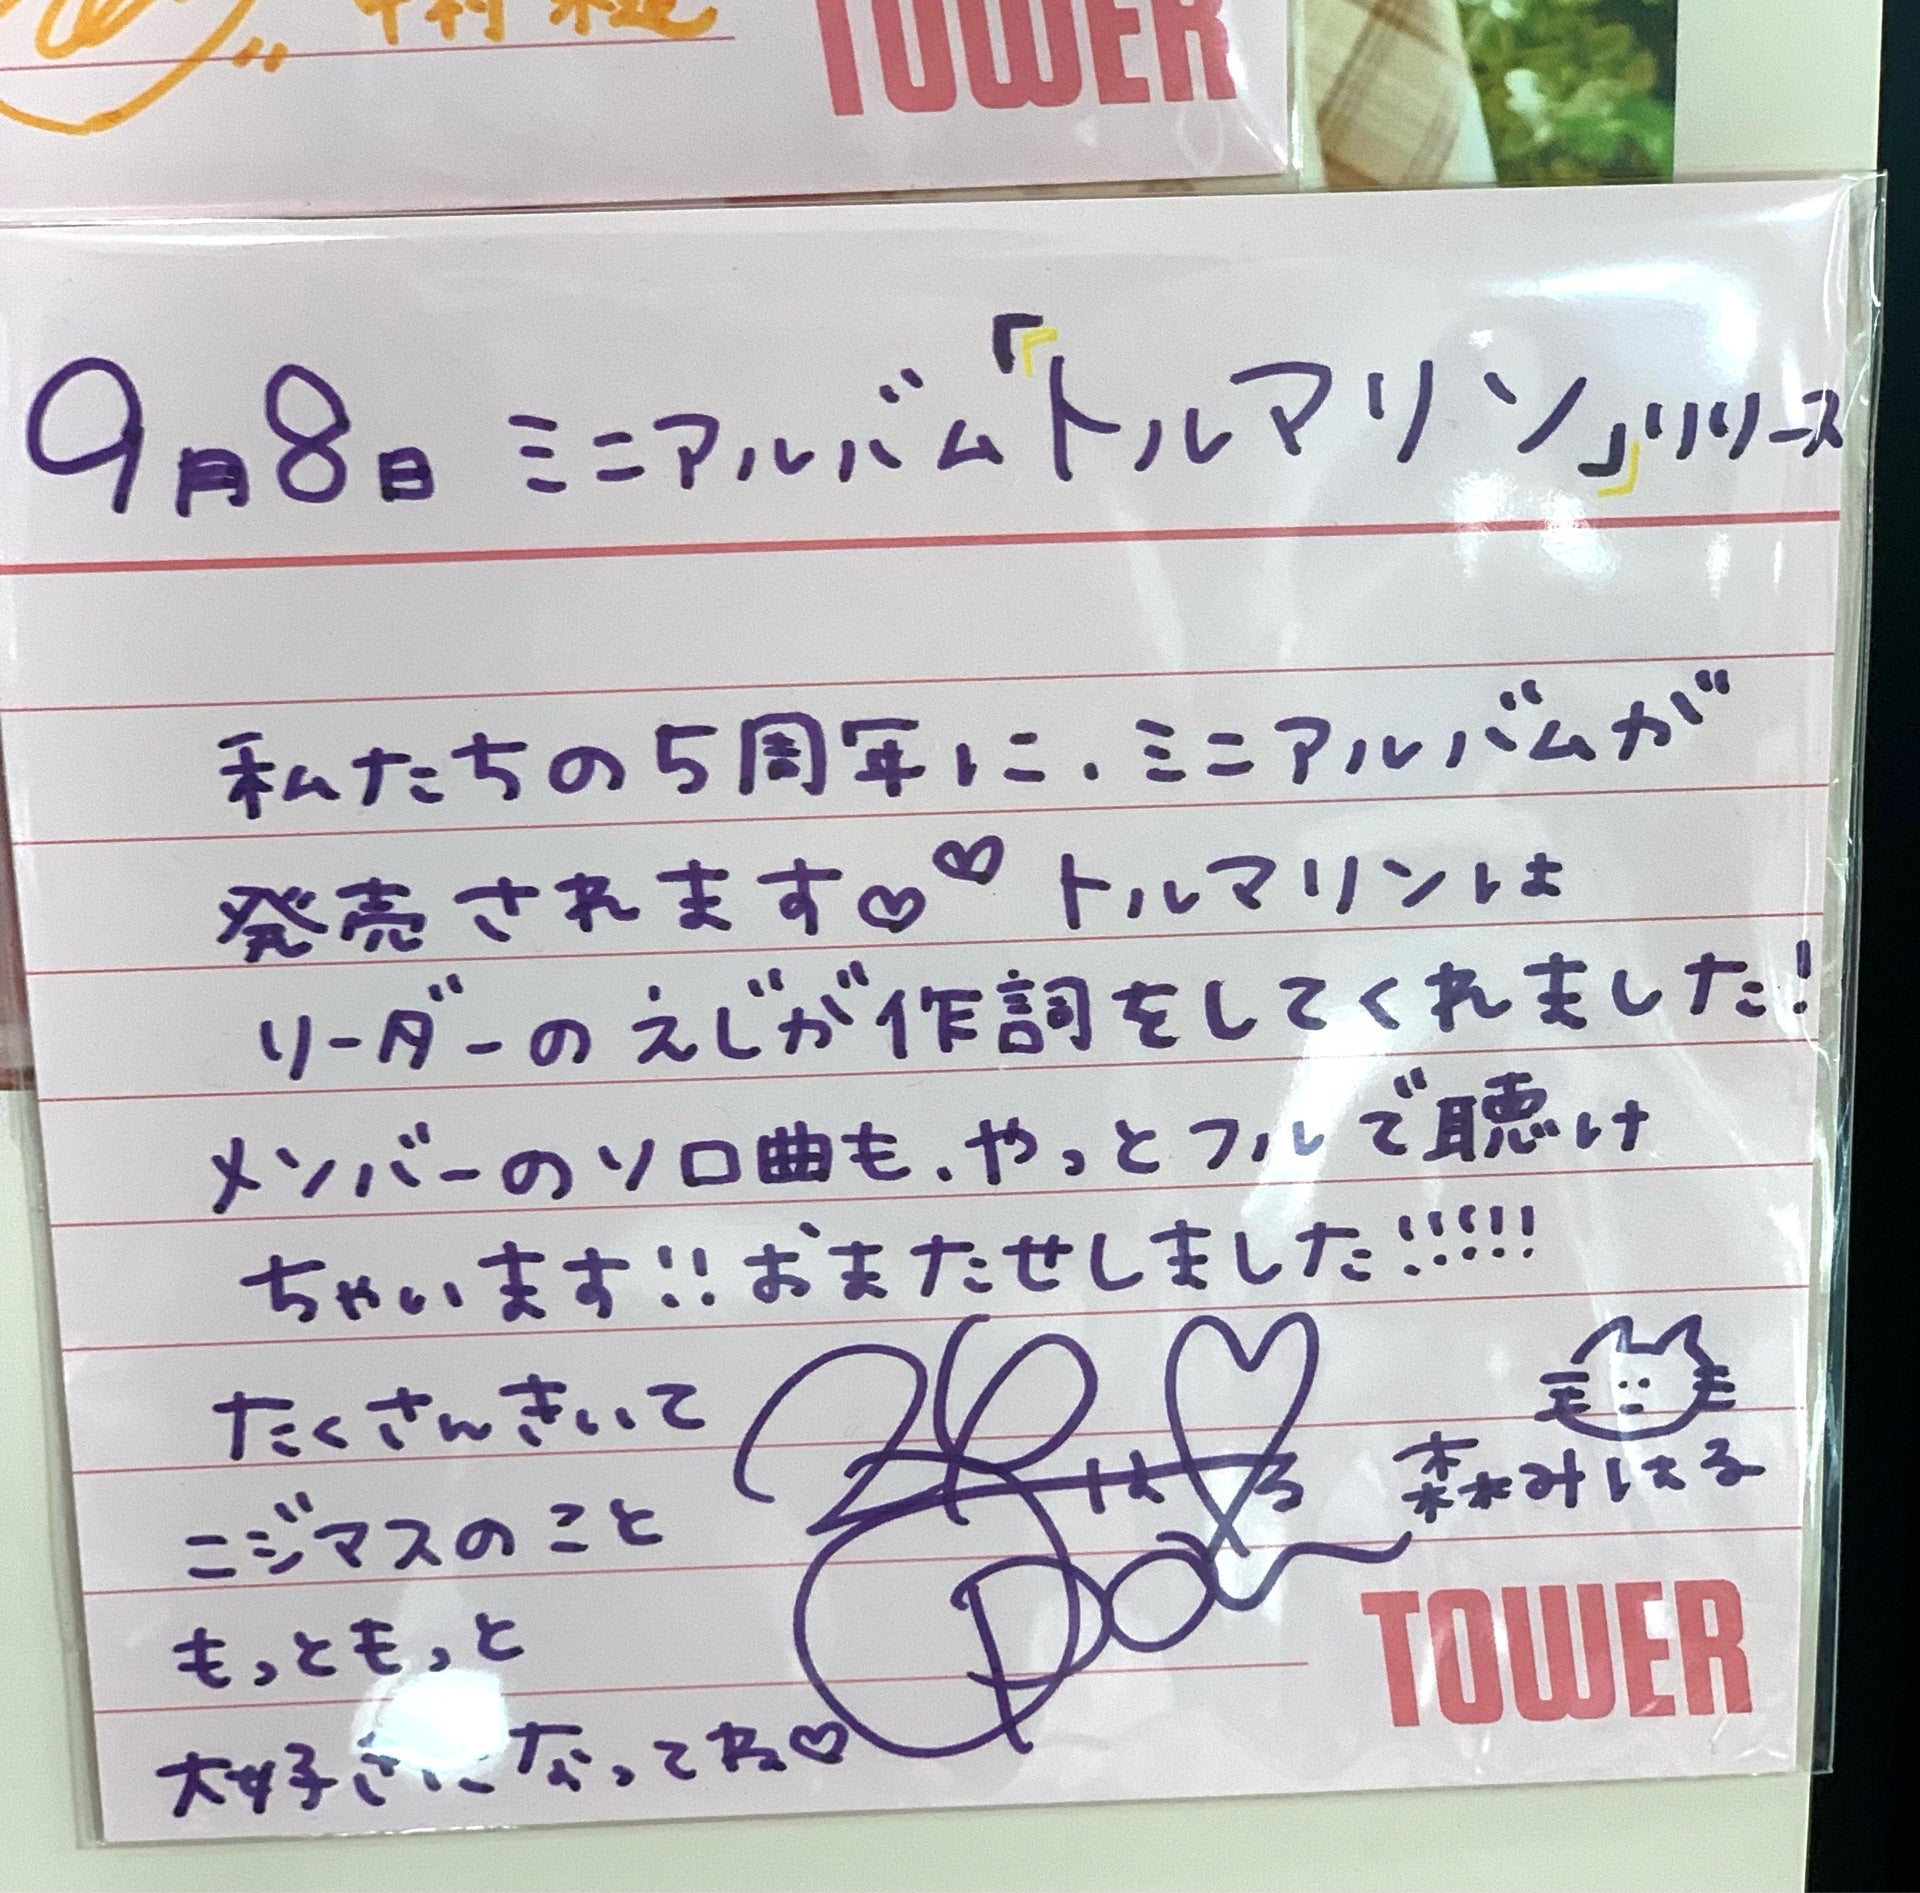 中村
TOWER
9月8日 ミニアルバム「トルマリン」リリース
私たちの5周年に、ミニアルバムが
発売されます♡♡ トルマリンは
リーダーのえじが作詞をしてくれました!
メンバーのソロ曲も、やっとフルで聴け
ちゃいます!! おまたせしました!!!!!!
たくさんきいて
ニジマスのこと
もっともっと
大好きになってね♡
森みはる
TOWER